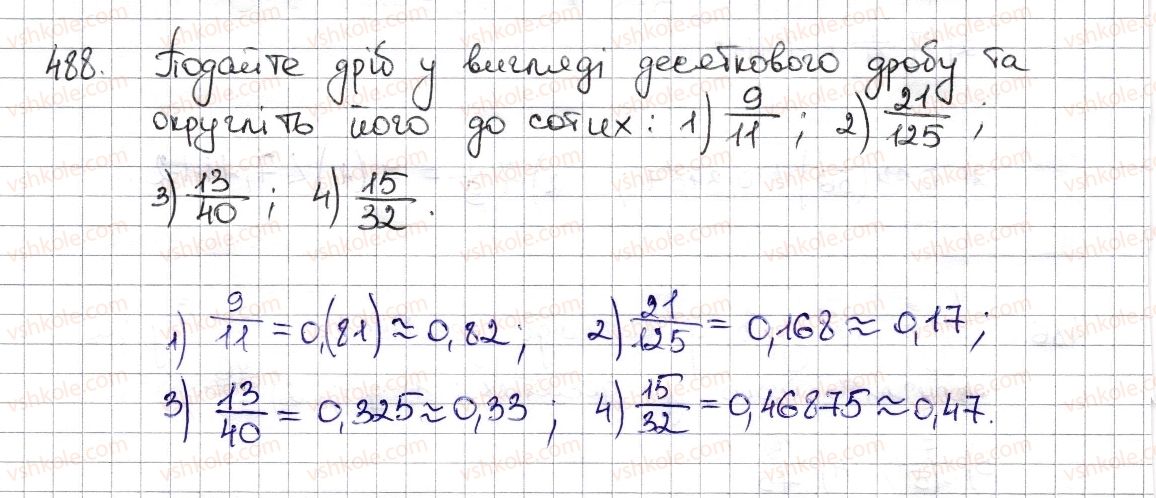 488. Подайте дріб у вигляді десяткового дробу та
округліть його до сотих: 1) 9/11; 2) 21/125;
3) 13/40; 4) 15/32.
1) 9/11 = 0,(81) ≈ 0,82; 2) 21/125 = 0,168 ≈ 0,17;
3) 13/40 = 0,325 ≈ 0,33; 4) 15/32 = 0,46875 ≈ 0,47.
vshkole.com